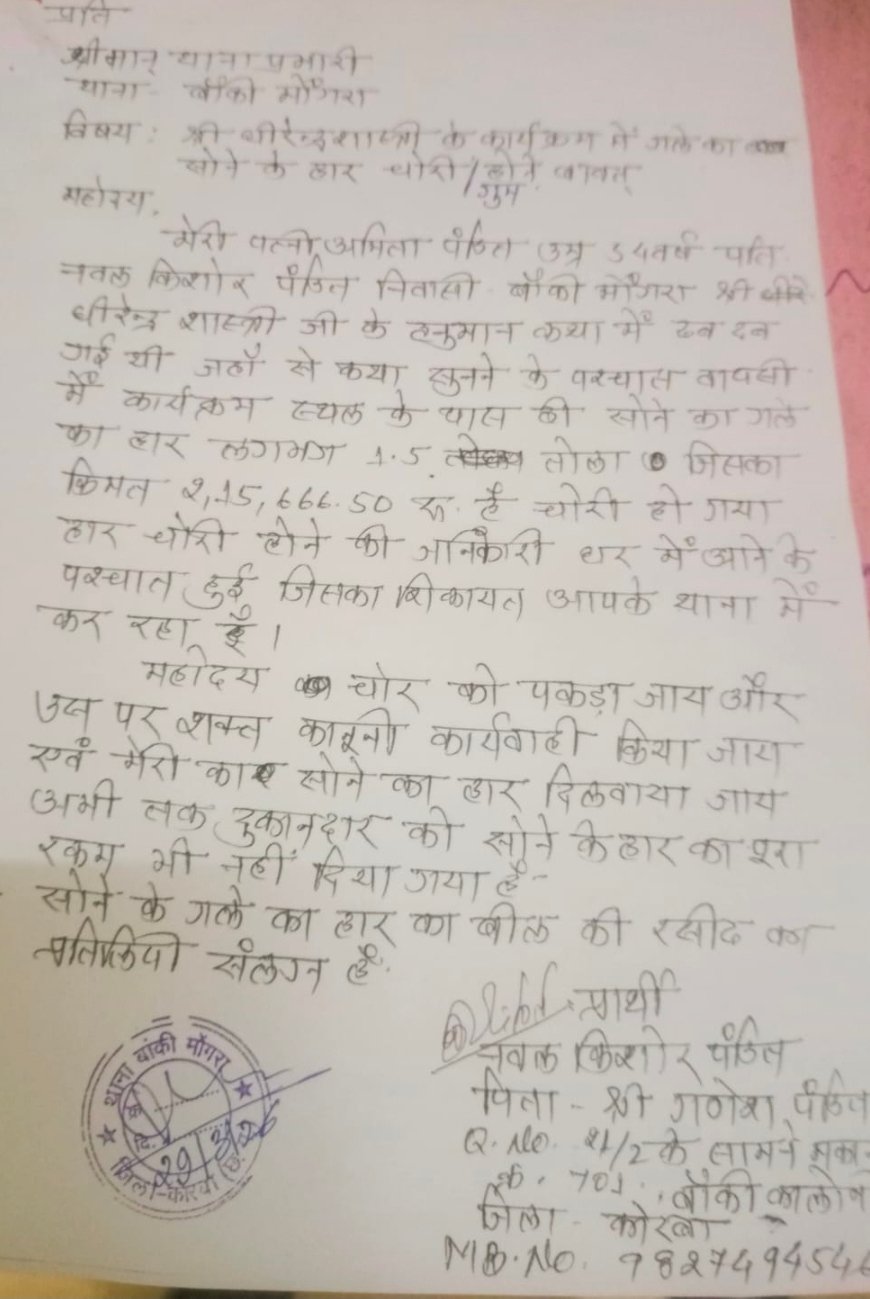 प्रति
श्रीमान् थाना प्रभारी
थाना - बाँकी मोंगरा
विषय : श्री धीरेन्द्र शास्त्री के कार्यक्रम में गले का
सोने के हार चोरी / गुम होने बाबत्
महोदय,
मेरी पत्नी अमिता पंडित उम्र 54 वर्ष पति
नवल किशोर पंडित निवासी - बाँकी मोंगरा श्री
धीरेन्द्र शास्त्री जी के हनुमान कथा में
गई थी जहाँ से कथा सुनने के पश्चात वापसी
में कार्यक्रम स्थल के पास ही सोने का गले
का हार लगभग 1.5 तोला जिसका
किमत 2,15,666.50 रू. है चोरी हो गया
हार चोरी होने की जानकारी घर में आने के
पश्चात हुई जिसका शिकायत आपके थाना में
कर रहा हूँ।
महोदय चोर को पकड़ा जाय और
उस पर शक्त कानूनी कार्यवाही किया जाय
एवं मेरी सोने का हार दिलवाया जाय
अभी तक दुकानदार को सोने के हार का पूरा
रकम भी नहीं दिया गया है -
सोने के गले का हार का बील की रसीद का
प्रतिलिपी संलग्न है.
प्रार्थी
नवल किशोर पंडित
पिता - श्री गणेश पंडित
Q. No. 21/2 के सामने मकान
क्र. 701, बाँकी कालोन
जिला - कोरबा
MB. No. 9827494546
थाना बांकी मोंगरा
29/3/26
जिला-कोरबा (छ.ग.)